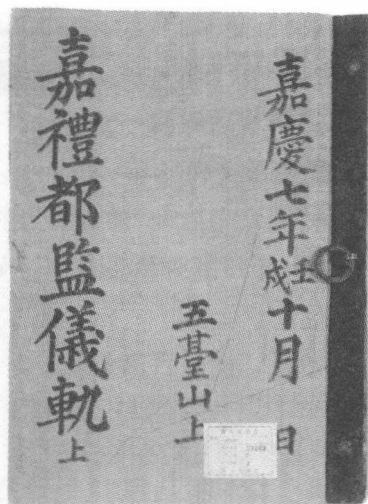 嘉慶七年壬戌十月 日
五臺山上
嘉禮都監儀軌 上